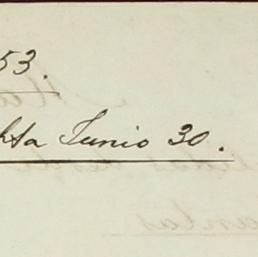 53.
hta Junio 30.